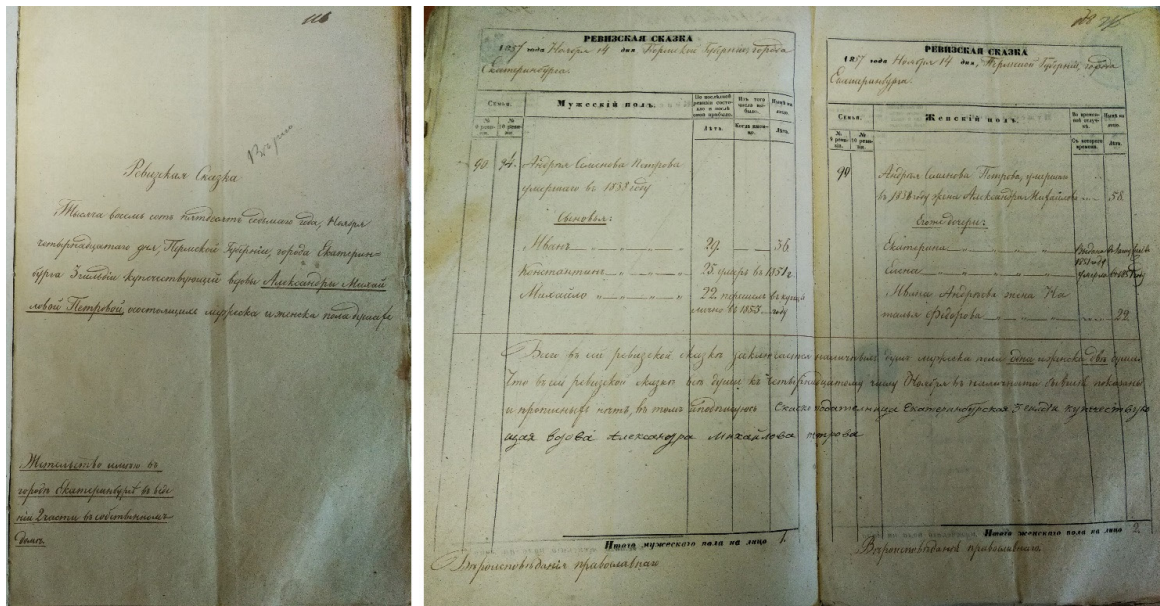 116
Вторая
Ревизская Сказка
Тысяча восемь сотъ пятдесятъ седьмаго года, Ноября
четырнадцатаго дня, Пермской Губерніи, города Екатерин=
бурга 3 гильдіи купечествующей вдовы Александры Михай
ловой Петровой, о состоящихъ мужеска и женска пола
Жительство имѣю въ
городѣ Екатеринбургѣ въ
2 части въ собственномъ
домѣ.
РЕВИЗСКАЯ СКАЗКА
1857 года Ноября 14 дня Пермской Губерніи, города
Екатеринбурга.
Семьи. Мужескій полъ. По послѣдней ревизіи состояло и послѣ оной прибыло. Изъ того числа выбыло. Нынѣ на лицо.
№ 9 ревизіи. № 10 ревизіи. Лѣтъ. Когда именно. Лѣтъ.
90 94. Андрея Семенова Петрова
умершаго въ 1838 году
Сыновья:
Иванъ — „ — „ — „ 29. 36.
Константинъ — „ — „ — „ 25 умеръ въ 1851 г.
Михайло „ — „ — „ — „ 22 перешелъ въ купцы
лично въ 1853 году
Всего въ сей ревизской сказкѣ заключается наличныхъ душъ мужска пола одна и женска двѣ души
Что въ сей ревизской сказкѣ всѣ души къ четырнадцатому числу Ноября въ наличности бывшіе показаны
и прописныхъ нѣтъ, въ томъ подписуюсь сказкоподательница Екатеринбурская 3 гильдіи купчествую
щая вдова Александра Михайлова Петрова
Итого мужескаго пола на лицо 1.
Вѣроисповѣданія православнаго
РЕВИЗСКАЯ СКАЗКА
1857 года Ноября 14 дня, Пермской Губерніи, города
Екатеринбурга.
Семьи. Женскій полъ. Во временной отлучкѣ. Нынѣ на лицо.
№ 9 ревизіи. № 10 ревизіи. Съ котораго времени. Лѣтъ.
90 Андрея Семенова Петрова, умершаго
въ 1838 году жена Александра Михайлова 58.
Его же дочери:
Екатерина — „ — „ — „ выдана въ замужество
1851 году
Елена — „ — „ — „ умерла въ 1851 году
Ивана Андреева жена На
талья Ѳедорова — „ — „ 22.
Итого женскаго пола на лицо 2.
Вѣроисповѣданія православнаго.